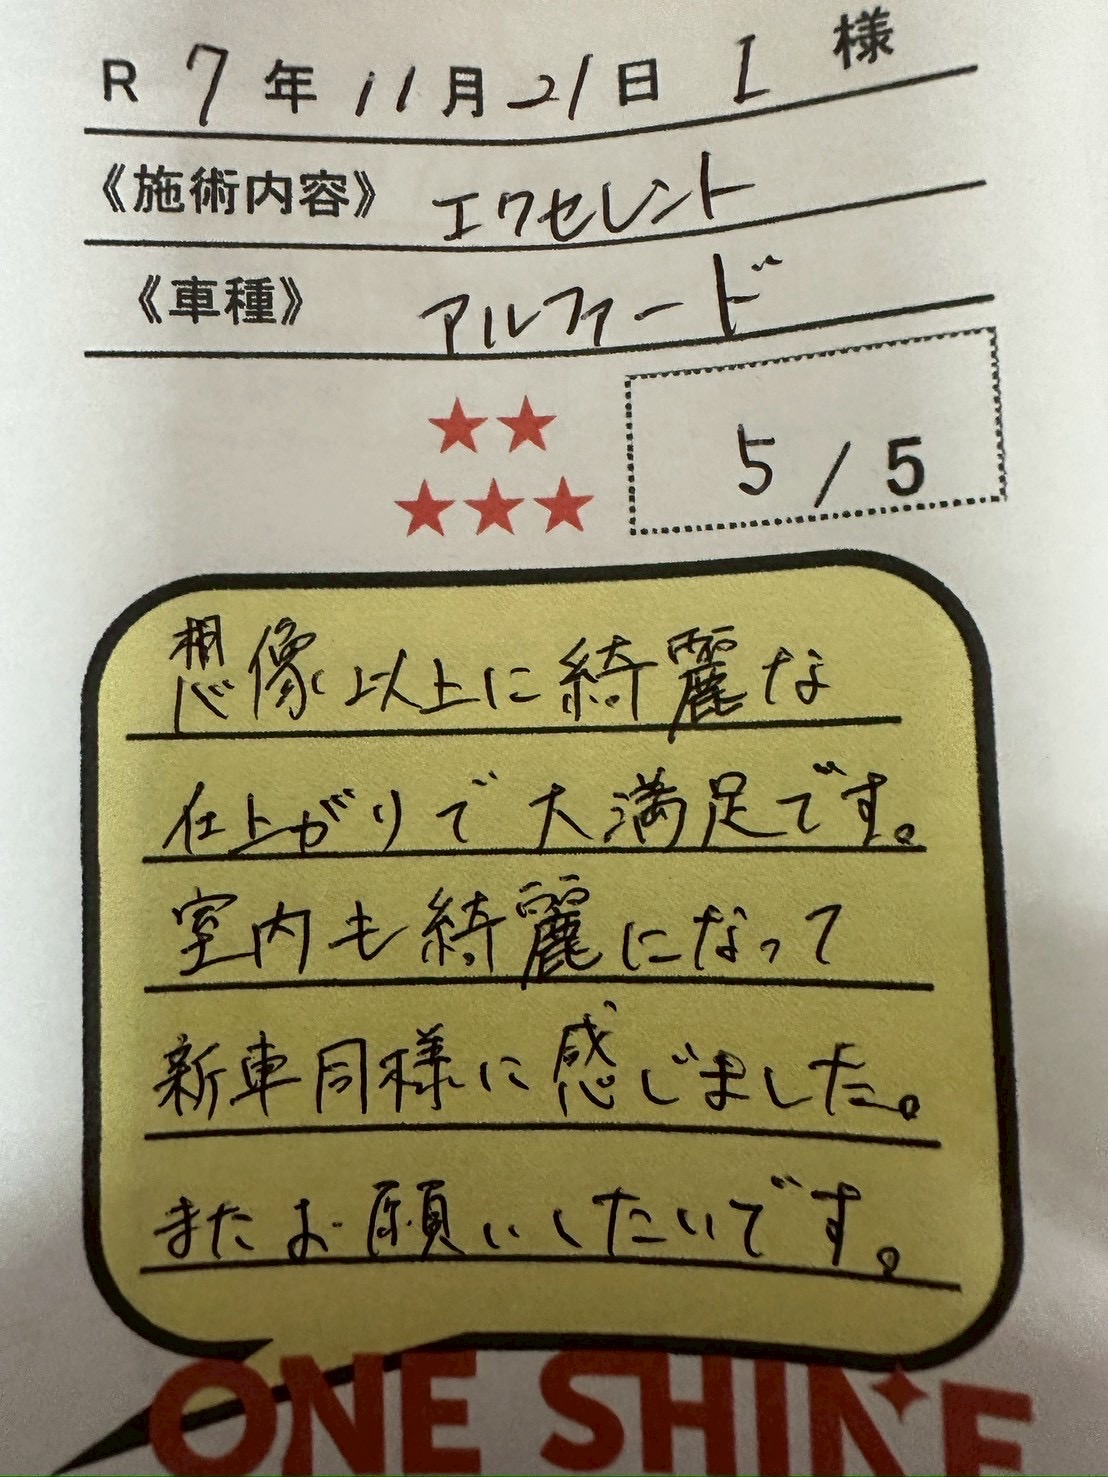 R 7年 11月21日 I 様
《施術内容》 エクセレント
《車種》 アルファード
★★
★★★
5/5
想像以上に綺麗な
仕上がりで大満足です。
室内も綺麗になって
新車同様に感じました。
またお願いしたいです。
ONE SHINE